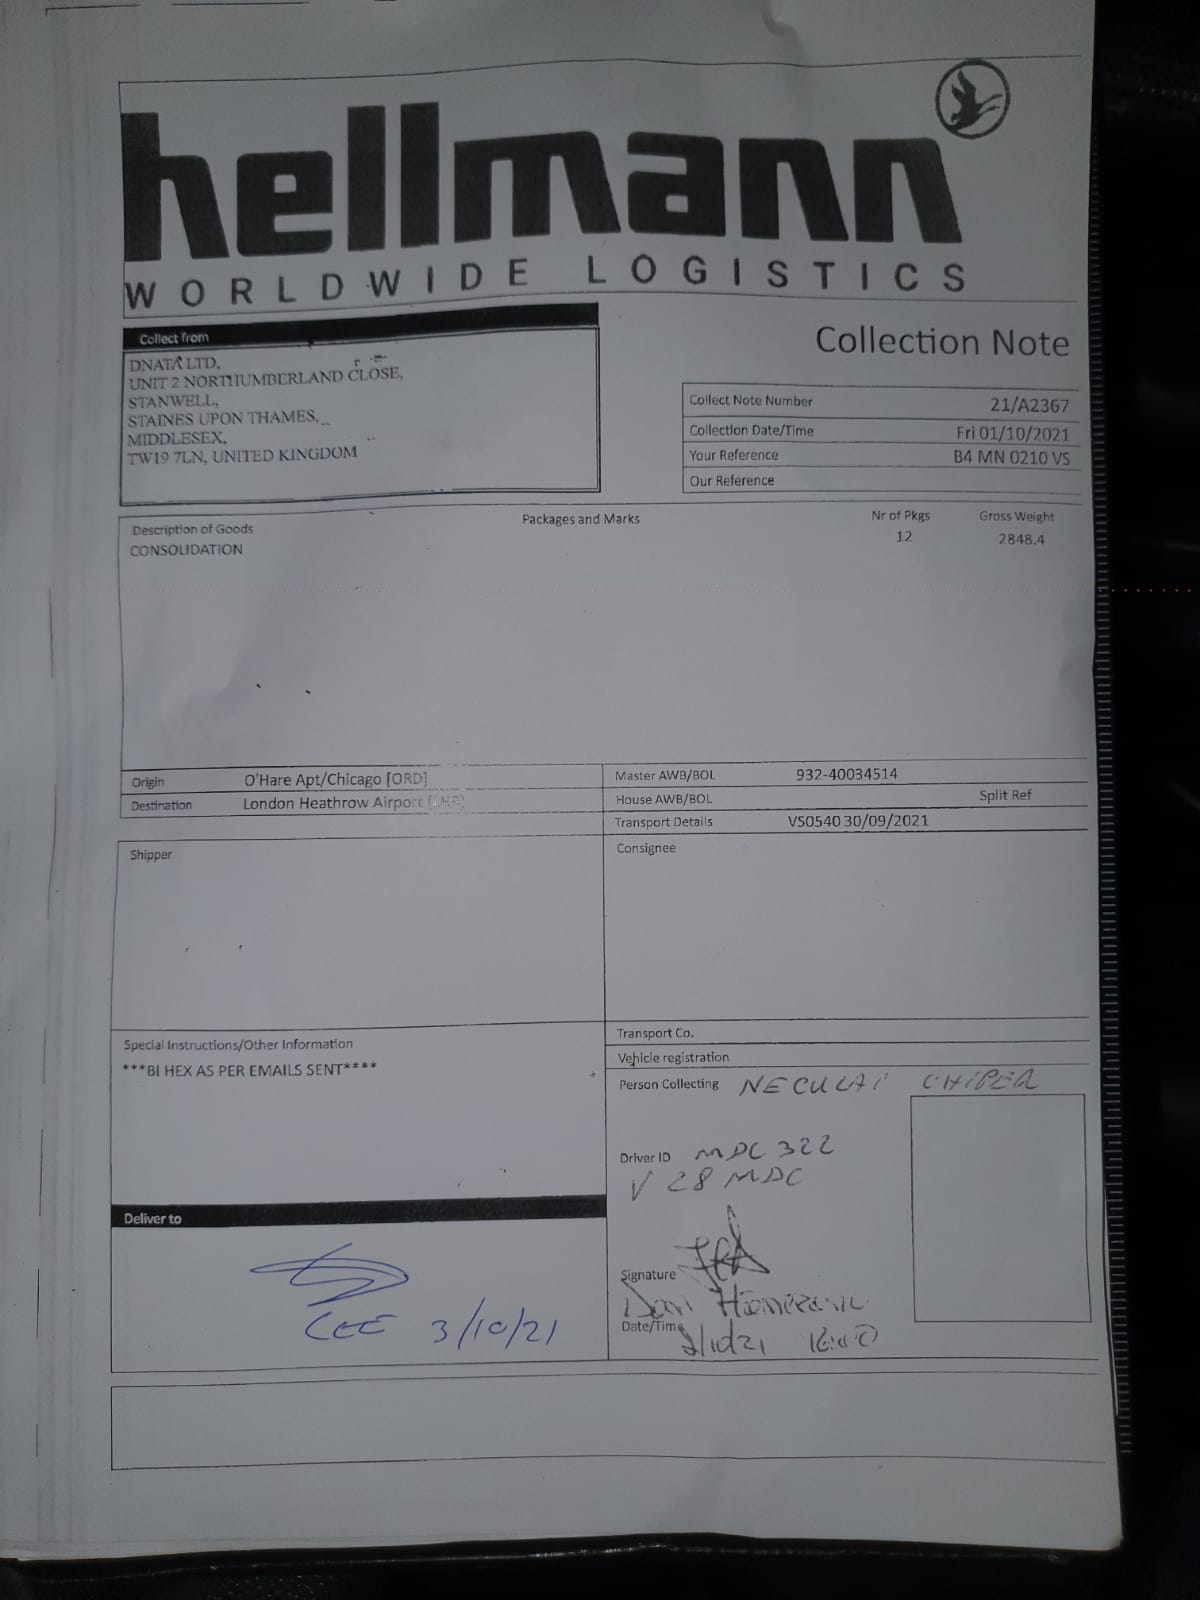 hellmann
WORLDWIDE LOGISTICS
Collect from
DNATA LTD,
UNIT 2 NORTHUMBERLAND CLOSE,
STANWELL,
STAINES UPON THAMES,
MIDDLESEX,
TW19 7LN, UNITED KINGDOM
Collection Note
Collect Note Number 21/A2367
Collection Date/Time Fri 01/10/2021
Your Reference B4 MN 0210 VS
Our Reference
Description of Goods Packages and Marks Nr of Pkgs Gross Weight
CONSOLIDATION 12 2848.4
Origin O'Hare Apt/Chicago [ORD]
Destination London Heathrow Airport [LHR]
Master AWB/BOL 932-40034514
House AWB/BOL Split Ref
Transport Details VS0540 30/09/2021
Shipper
Consignee
Special Instructions/Other Information
***BI HEX AS PER EMAILS SENT****
Transport Co.
Vehicle registration
Person Collecting NECULAI CHIPER
Driver ID MDC 322
V28 MDC
Signature
Date/Time
Deliver to
CEE 3/10/21